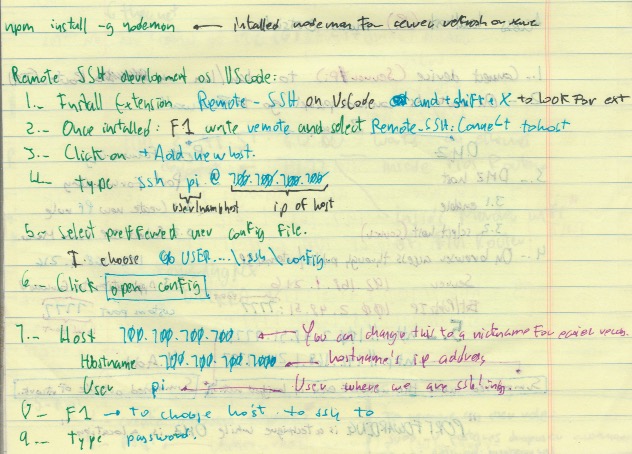 npm install -g nodemon ← intalled nodemon For server refresh on save
Remote SSH development os VScode:
1.- Install Extension Remote-SSH on VsCode cmd+shift+X to look For ext
2.- Once installed: F1 write remote and select Remote-SSH: Connect to host
3.- Click on + Add new host.
4.- type ssh pi @ 700.700.700.700
user/namehost ip of host
5. Select preffered user config File.
I choose USER...\.ssh\config
6.- Click open config
7.- Host 700.700.700.700 ← You can change this to a nickname For easier
Hostname 700.700.700.700 ← hostname's ip address
User pi ← User where we are ssh'ing.
8.- F1 → to choose host to ssh to
9.- type password.